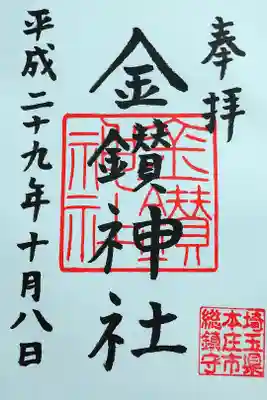 奉拝
金鑚神社
金鑚神社
平成二十九年十月八日
埼玉県
本庄市
総鎮守